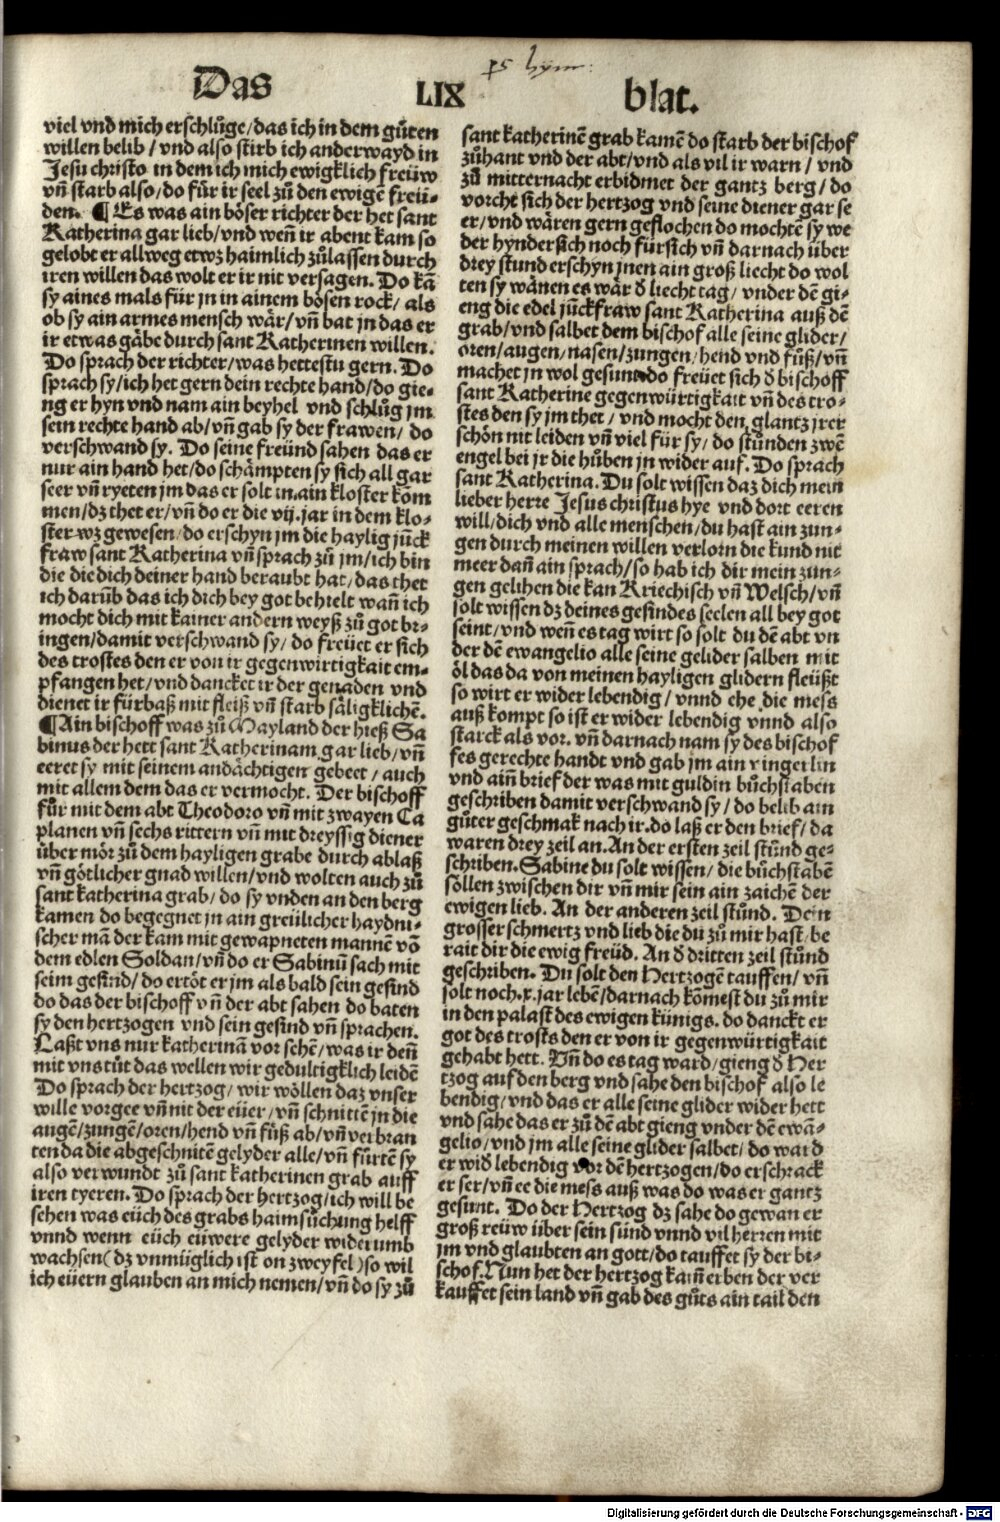 Das LIX blat.
viel vnd mich erschlůge/das ich in dem gůten
willen belib/ vnd also stirb ich anderwayd in
Jesu christo in dem ich mich ewigklich freüw
vñ starb also/do für ir seel zů den ewigē freü⸗
den. ¶ Es was ain böser richter der het sant
Katherina gar lieb/vnd weñ ir abent kam so
gelobt er allweg etwz haimlich zůlassen durch
iren willen das wolt er ir nit versagen. Do kā
sy aines mals für jn in ainem bösen rock/ als
ob sy ain armes mensch wär/vñ bat jn das er
ir etwas gäbe durch sant Katherinen willen.
Do sprach der richter/was hettestu gern. Do
sprach sy/ich het gern dein rechte hand/do gie⸗
ng er hyn vnd nam ain beyhel vnd schlůg jm
sein rechte hand ab/vñ gab sy der frawen/ do
verschwand sy. Do seine freünd sahen das er
nur ain hand het/do schämpten sy sich all gar
seer vñ ryeten jm das er solt in ain kloster kom
men/dz thet er/vñ do er die vij.jar in dem klo⸗
ster wz gewesen/do erschyn jm die haylig jůck
fraw sant Katherina vñ sprach zů jm/ich bin
die die dich deiner hand beraubt hat/das thet
ich darūb das ich dich bey got behielt wañ ich
mocht dich mit kainer andern weyß zů got br⸗
ingen/damit verschwand sy/ do freüet er sich
des trostes den er von ir gegenwirtigkait em⸗
pfangen het/vnd dancket ir der genaden vnd
dienet ir fürbaß mit fleiß vñ starb säligklichē.
¶Ain bischoff was zů Mayland der hieß Sa
binus der hett sant Katherinam gar lieb/vñ
eeret sy mit seinem andächtigen gebeet/ auch
mit allem dem das er vermocht. Der bischoff
für mit dem abt Theodoro vñ mit zwayen Ca
planen vñ sechs rittern vñ mit dreyssig diener
über mör zů dem hayligen grabe durch ablaß
vñ götlicher gnad willen/vnd wolten auch zů
sant katherina grab/do sy vnden an den berg
kamen do begegnet jn ain greülicher haydni⸗
scher mā der kam mit gewapneten mannē vō
dem edlen Soldan/vñ do er Sabinū sach mit
seim gesind/do ertöt er jm als bald sein gesind
do das der bischoff vñ der abt sahen do baten
sy den hertzogen vnd sein gesind vñ sprachen.
Laßt vns nur katherinā vor sehē/was ir deñ
mit vns tůt das wellen wir gedultigklich leidē
Do sprach der hertzog/ wir wöllen daz vnser
wille vorgee vñ nit der eüer/vñ schnittē jn die
augē/zungē/oren/hend vñ füß ab/vñ verbran
ten da die abgeschnitē gelyder alle/vñ fürtē sy
also verwundt zů sant katherinen grab auff
iren tyeren. Do sprach der hertzog/ich will be
sehen was eüch des grabs haimsůchung helff
vnnd wenn eüch eüwere gelyder widerumb
wachsen(dz vnmüglich ist on zweyfel)so wil
ich eüern glauben an mich nemen/vñ do sy zů
sant katherinē grab kamē do starb der bischof
zůhant vnd der abt/vnd als vil ir warn/ vnd
zů mitternacht erbidmet der gantz berg/ do
vorcht sich der hertzog vnd seine diener gar se
er/vnd wären gern geflochen do mochtē sy we
der hyndersich noch fürsich vñ darnach über
drey stund erschyn jnen ain groß liecht do wol
ten sy wänen es wär ď liecht tag/ vnder dē gi⸗
eng die edel jůckfraw sant Katherina auß dē
grab/vnd salbet dem bischof alle seine glider/
oren/augen/nasen/zungen/hend vnd füß/vñ
machet jn wol gesunt do freüet sich ď bischoff
sant Katherine gegenwürtigkait vñ des tro⸗
stes den sy jm thet/ vnd mocht den glantz jrer
schön nit leiden vñ viel für sy/ do stůnden zwē
engel bei jr die hůben jn wider auf. Do sprach
sant Katherina. Du solt wissen daz dich mein
lieber herre Jesus christus hye vnd dort eeren
will/dich vnd alle menschen/du hast ain zun⸗
gen durch meinen willen verlorn die kund nit
meer dañ ain sprach/so hab ich dir mein zun⸗
gen gelihen die kan Kriechisch vñ Welsch/vñ
solt wissen dz deines gesindes seelen all bey got
seint/vnd weñ es tag wirt so solt du dē abt vn
der dē ewangelio alle seine gelider salben mit
öl das da von meinen hayligen glidern fleüßt
so wirt er wider lebendig/ vnnd ehe die mess
auß kompt so ist er wider lebendig vnnd also
starck als vor. vñ darnach nam sy des bischof
fes gerechte handt vnd gab jm ain vingerlin
vnd aiñ brief der was mit guldin bůchstaben
geschriben damit verschwand sy/ do belib ain
gůter geschmak nach ir.do laß er den brief/ da
waren drey zeil an.An der ersten zeil stůnd ge⸗
schriben.Sabine du solt wissen/ die bůchstabē
söllen zwischen dir vñ mir sein ain zaichē der
ewigen lieb. An der anderen zeil stůnd. Dein
grosser schmertz vnd lieb die du zů mir hast/be
rait dir die ewig freüd. An ď dritten zeil stůnd
geschriben. Du solt den Hertzogē tauffen/ vñ
solt noch.x.jar lebē/darnach kömest du zů mir
in den palast des ewigen künigs. do danckt er
got des trosts den er von ir gegenwürtigkait
gehabt hett. Vñ do es tag ward/gieng ď Her
tzog auf den berg vnd sahe den bischof also le
bendig/vnd das er alle seine glider wider hett
vnd sahe das er zů dē abt gieng vnder dē ewā⸗
gelio/vnd jm alle seine glider salbet/do ward
er wiď lebendig vor dē hertzogen/do erschrack
er ser/vñ ee die mess auß was do was er gantz
gesunt. Do der Hertzog dz sahe do gewan er
groß reüw über sein sünd vnnd vil herren mit
jm vnd glaubten an gott/do tauffet sy der bi⸗
schof.Nun het der hertzog kaiñ erben der ver
kauffet sein land vñ gab des gůts ain tail den
Digitalisierung gefördert durch die Deutsche Forschungsgemeinschaft - DFG